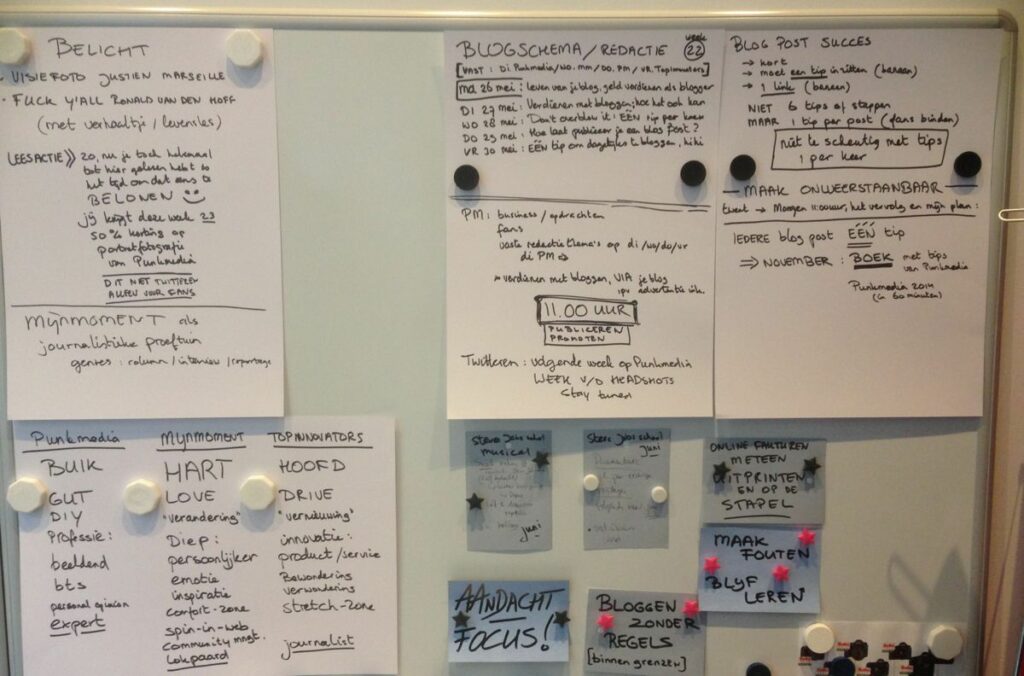 BELICHT
VISIEFOTO JUSTIEN MARSEILLE
- FUCK Y'ALL RONALD VAN DEN HOFF
(met verhaaltje / levensles)
LEESACTIE » 20, nu je toch helemaal
tot hier gelezen hebt is
het tijd om dat eens te
BELONEN
jij krijgt deze week 23
50% korting op
portretfotografie
van Punkmedia
DIT NIET TWITTEREN
ALLEEN VOOR FANS
MIJNMOMENT als
journalistieke proeftuin
genres: column / interview / reportage
BLOGSCHEMA / REDACTIE week 22
[VAST: Di Punkmedia / WO. MM / DO. PM / VR. Topinnovators]
ma 26 mei: leven van je blog, geld verdienen als blogger
DI 27 mei: Verdienen met bloggen; hoe het ook kan
WO 28 mei: Don't overblow it: EÉN tip per keer
DO 29 mei: Hoe laat publiceer je een blog post?
VR 30 mei: EÉN tip om dagelijks te bloggen, hihi
PM: business / opdrachten
fans
vaste redactiethema's op di/wo/do/vr
di PM
verdienen met bloggen, VIA je blog
ipv advertentie
11.00 UUR
PUBLICEREN
PROMOTEN
Twitteren: volgende week op Punkmedia
WEEK v/d HEADSHOTS
Stay tuned
BLOG POST SUCCES
→ kort
→ moet een tip in zitten (banaan)
→ 1 link (banaan)
NIET 6 tips of stappen
MAAR 1 tip per post (fans binden)
niet te scheutig met tips
1 per keer
— MAAK ONWEERSTAANBAAR —
tweet → Morgen 11.00 uur, het vervolg en mijn plan:
IEDERE blog post ÉÉN tip
⇒ NOVEMBER: BOEK met tips
van Punkmedia
Punkmedia 2014
(in 60 minuten)
Punkmedia
BUIK
GUT
DIY
Professie:
beeldend
bts
personal opinion
expert
MIJNMOMENT
HART
LOVE
"verandering"
Diep:
persoonlijker
emotie
inspiratie
comfort-zone
spin-in-web
community mngt.
Lokpaard
TOPINNOVATORS
HOOFD
DRIVE
"vernieuwing"
innovatie:
product/service
Bewondering
verwondering
stretch-zone
journalist
Steve Jobs
musical
juni
Steve Jobs school
juni
ONLINE FAKTUREN
METEEN
UITPRINTEN
EN OP DE
STAPEL
MAAK
FOUTEN
BLIJF
LEREN
AANDACHT
FOCUS!
BLOGGEN
ZONDER
REGELS
[binnen grenzen]